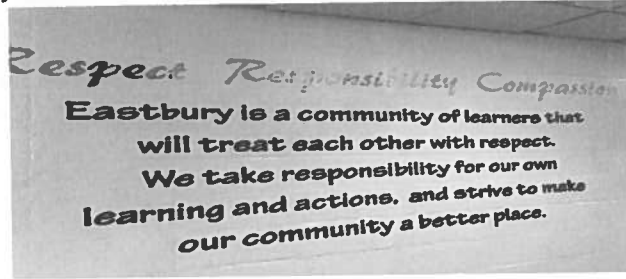 Respect Responsibility Compassion
Eastbury is a community of learners that
will treat each other with respect.
We take responsibility for our own
learning and actions, and strive to make
our community a better place.